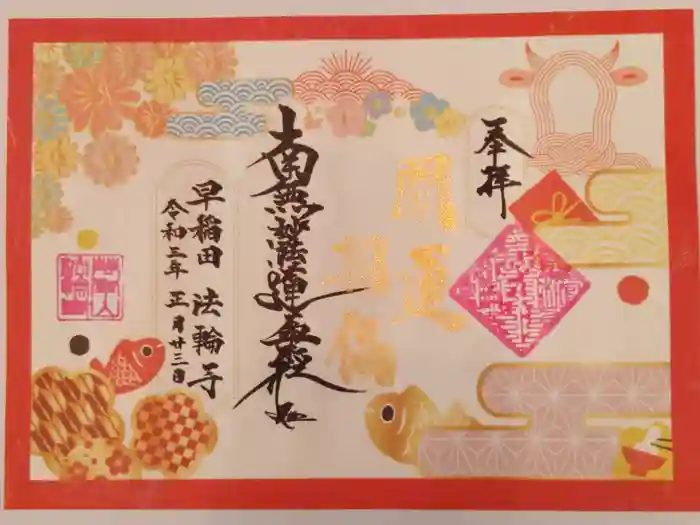 奉拝
開運
招福
南無妙法蓮華経
早稲田 法輪寺
令和三年 正月廿三日